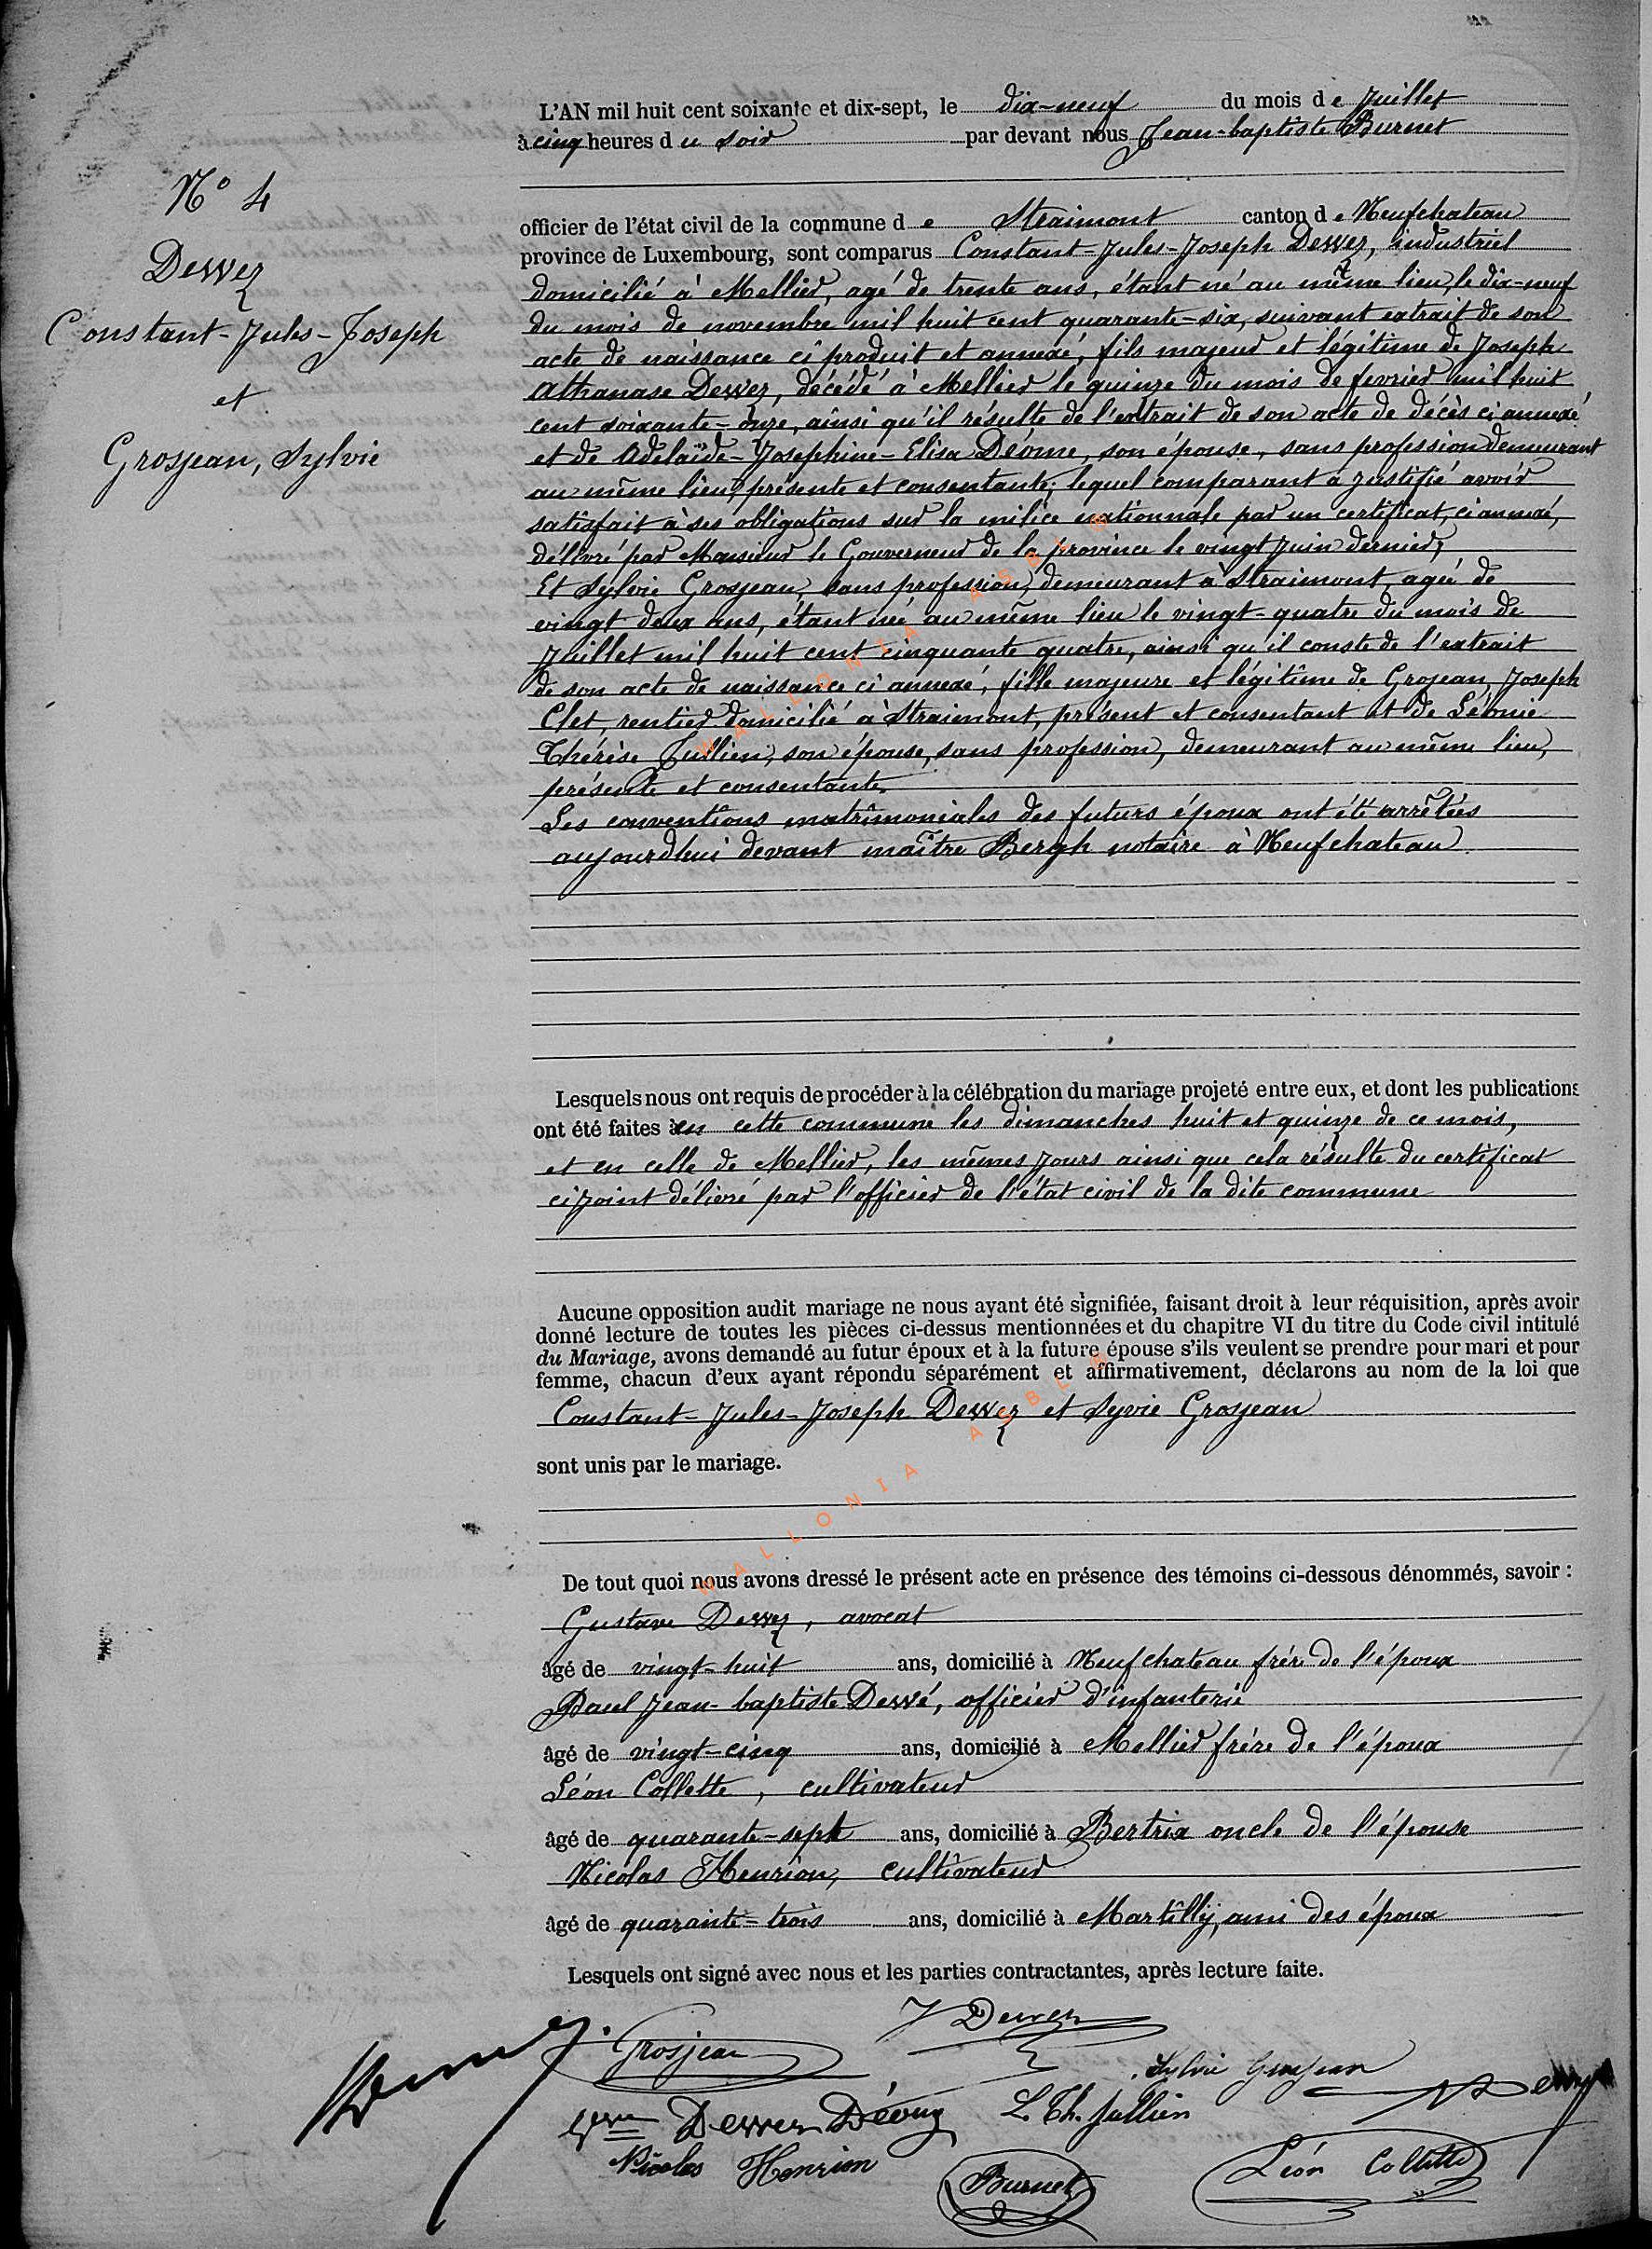 L'AN mil huit cent soixante et dix-sept, le dix-neuf du mois de Juillet
à cinq heures du soir par devant nous Jean-baptiste Burnet
N° 4
Dewez
Constant-Jules-Joseph
et
Grosjean, Sylvie
officier de l'état civil de la commune de Straimont canton de Neufchateau
province de Luxembourg, sont comparus Constant-Jules-Joseph Dewez, industriel
domicilié à Mellier, agé de trente ans, étant né au même lieu, le dix-neuf
du mois de novembre mil huit cent quarante-six, suivant extrait de son
acte de naissance ci produit et annexé, fils majeur et légitime de Joseph
Athanase Dewez, décédé à Mellier le quinze du mois de fevrier mil huit
cent soixante-onze, ainsi qu'il résulte de l'extrait de son acte de décès ci annexé
et de Adelaïde-Josephine-Elisa Déome, son épouse, sans profession demeurant
au même lieu, présente et consentante; lequel comparant a justifié avoir
satisfait à ses obligations sur la milice nationnale par un certificat, ci annexé,
délivré par Monsieur le Gouverneur de la province le vingt Juin dernier,
Et Sylvie Grosjean, sans profession, demeurant à Straimont, agée de
vingt deux ans, étant née au même lieu le vingt-quatre du mois de
Juillet mil huit cent cinquante quatre, ainsi qu'il conste de l'extrait
de son acte de naissance ci annexé, fille majeure et légitime de Grojean, Joseph
Clet, rentier domicilié à Straimont, présent et consentant et de Léonie
Thérèse Jullien, son épouse, sans profession, demeurant au même lieu,
présente et consentante.
Les conventions matrimoniales des futurs époux ont été arrêtées
aujourdhui devant maître Bergh notaire à Neufchateau
Lesquels nous ont requis de procéder à la célébration du mariage projeté entre eux, et dont les publications
ont été faites en cette commune les dimanches huit et quinze de ce mois,
et en celle de Mellier, les mêmes jours ainsi que cela résulte du certificat
ci joint délivré par l'officier de l'état civil de la dite commune
Aucune opposition audit mariage ne nous ayant été signifiée, faisant droit à leur réquisition, après avoir
donné lecture de toutes les pièces ci-dessus mentionnées et du chapitre VI du titre du Code civil intitulé
du Mariage, avons demandé au futur époux et à la future épouse s'ils veulent se prendre pour mari et pour
femme, chacun d'eux ayant répondu séparément et affirmativement, déclarons au nom de la loi que
Constant-Jules-Joseph Dewez et Syvie Grosjean
sont unis par le mariage.
De tout quoi nous avons dressé le présent acte en présence des témoins ci-dessous dénommés, savoir :
Gustave Dewez, avocat
âgé de vingt-huit ans, domicilié à Neufchateau frère de l'époux
Paul Jean-baptiste Dewé, officier d'infanterie
âgé de vingt-cinq ans, domicilié à Mellier frère de l'époux
Léon Collette, cultivateur
âgé de quarante-sept ans, domicilié à Bertrix oncle de l'épouse
Nicolas Henrion, cultivateur
âgé de quarante-trois ans, domicilié à Martilly, ami des époux
Lesquels ont signé avec nous et les parties contractantes, après lecture faite.
J Dewez
Grosjean
Sylvie Grosjean
Vve Dewez Déome L. Th. Jullien
Nicolas Henrion
Burnet
Léon Collette
WALLONIA ASBL
WALLONIA ASBL